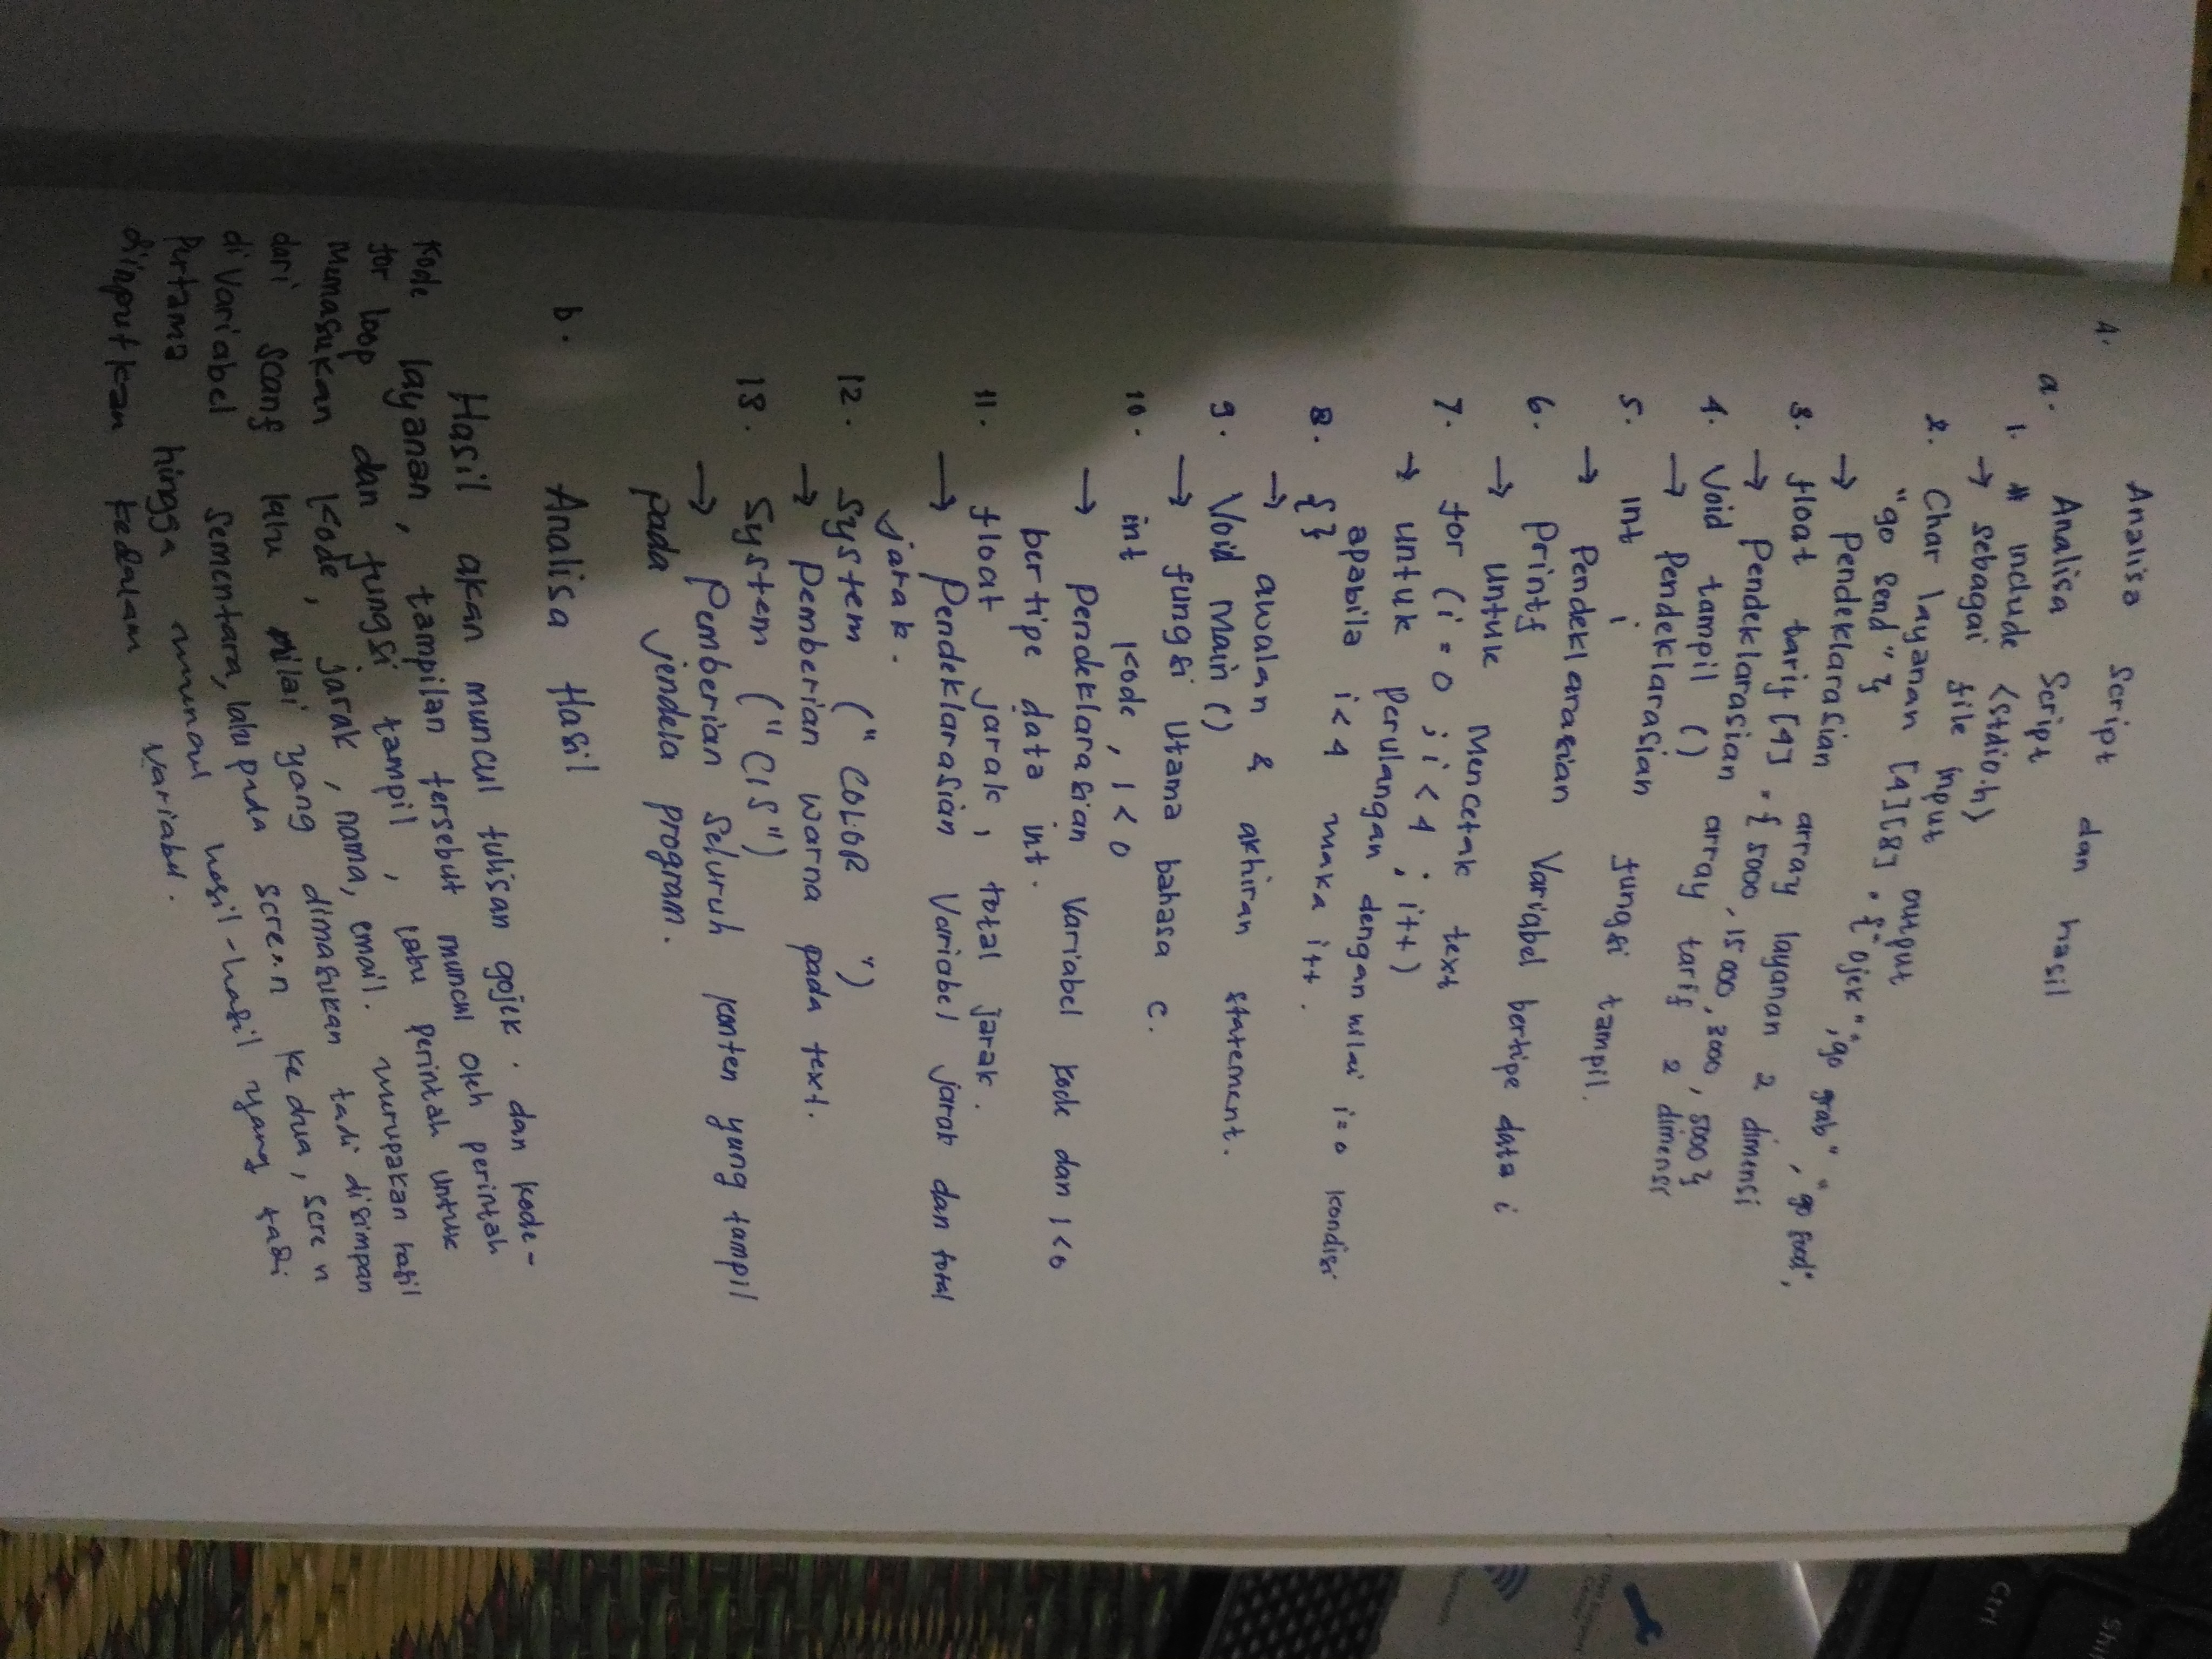 4. Analisa Script dan hasil
a. Analisa Script
1. # include <stdio.h>
→ sebagai file input output
2. Char layanan [4][8] = {"Ojek", "go grab", "go food",
"go send"}
→ Pendeklarasian array layanan 2 dimensi
3. float tarif [4] = { 5000, 15000, 3000, 5000 }
→ Pendeklarasian array tarif 2 dimensi
4. Void tampil ()
→ Pendeklarasian fungsi tampil.
5. int i
→ Pendeklarasian Variabel bertipe data i
6. Printf
→ Untuk Mencetak text
7. for (i = 0 ; i < 4 ; i++)
→ Untuk Perulangan dengan nilai i = 0 kondisi
apabila i < 4 maka i++.
8. { }
→ awalan & akhiran statement.
9. Void Main ()
→ fungsi Utama bahasa C.
10. int kode, 1 < 0
→ Pendeklarasian Variabel kode dan 1 < 0
bertipe data int.
11. float jarak, total jarak.
→ Pendeklarasian Variabel jarak dan total
jarak.
12. System ("COLOR ")
→ Pemberian warna pada text.
13. System ("ClS")
→ Pemberian Seluruh konten yang tampil
pada jendela program.
b. Analisa Hasil
Hasil akan muncul tulisan gojek. dan kode-
kode layanan, tampilan tersebut muncul oleh perintah
for loop dan fungsi tampil, lalu perintah untuk
memasukan kode, jarak, nama, email. merupakan hasil
dari scanf lalu nilai yang dimasukan tadi disimpan
di Variabel sementara, lalu pada screen ke dua, screen
Pertama hingga muncul hasil-hasil yang tadi
diinputkan kedalam Variabel.
Ctrl
Shi